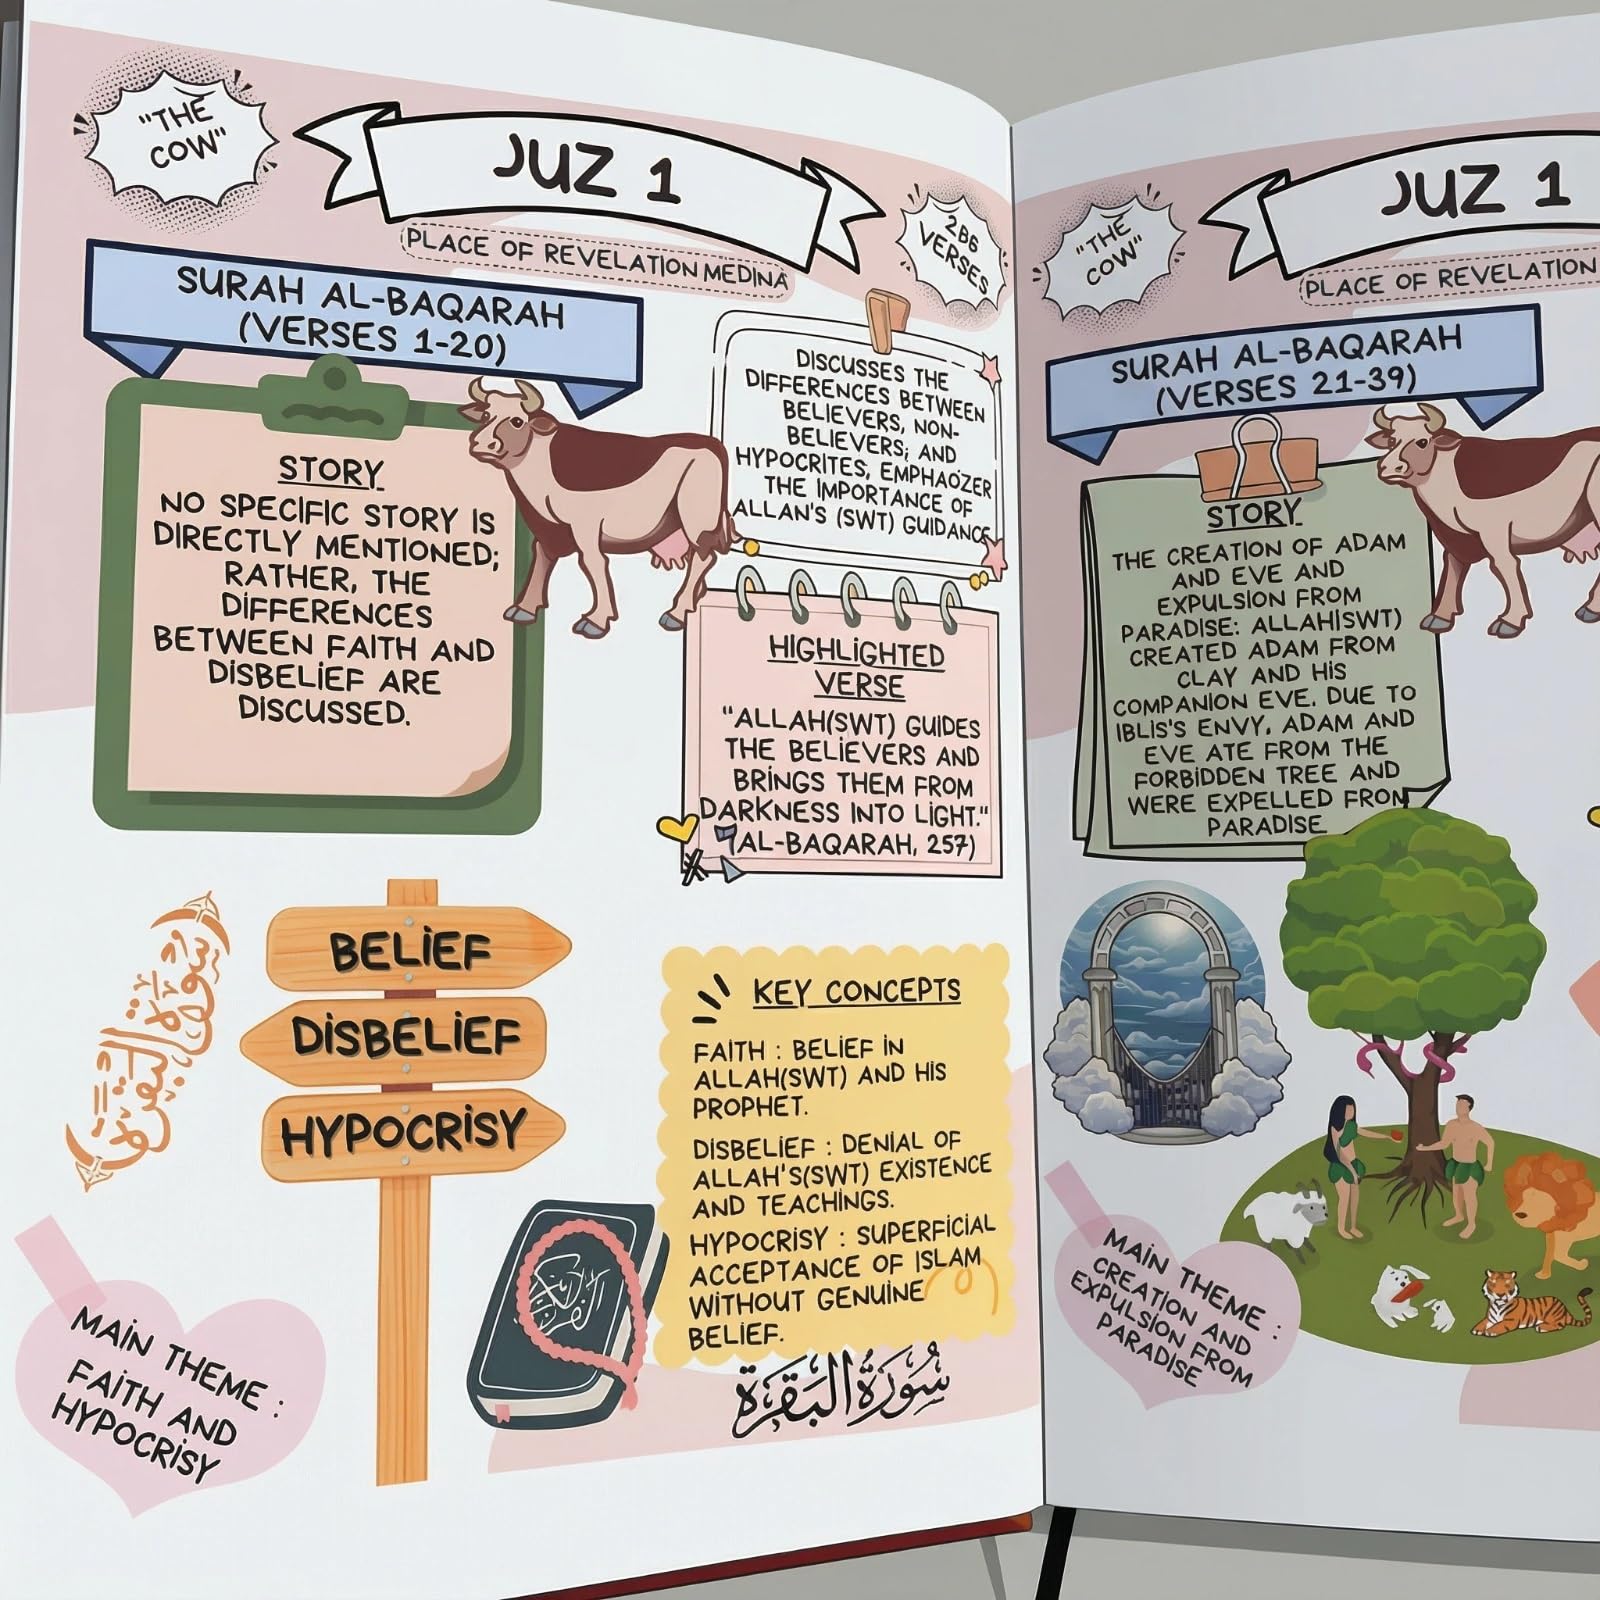 "THE
COW"
JUZ 1
PLACE OF REVELATION MEDINA
2B6
VERSES
SURAH AL-BAQARAH
(VERSES 1-20)
STORY
NO SPECIFIC STORY IS
DIRECTLY MENTIONED;
RATHER, THE
DIFFERENCES
BETWEEN FAITH AND
DISBELIEF ARE
DISCUSSED.
DISCUSSES THE
DIFFERENCES BETWEEN
BELIEVERS, NON-
BELIEVERS; AND
HYPOCRITES, EMPHAOZER
THE IMPORTANCE OF
ALLAN'S (SWT) GUIDANCE
HIGHLIGHTED
VERSE
"ALLAH(SWT) GUIDES
THE BELIEVERS AND
BRINGS THEM FROM
DARKNESS INTO LIGHT."
(AL-BAQARAH, 257)
BELIEF
DISBELIEF
HYPOCRISY
KEY CONCEPTS
FAITH : BELIEF IN
ALLAH(SWT) AND HIS
PROPHET.
DISBELIEF : DENIAL OF
ALLAH'S(SWT) EXISTENCE
AND TEACHINGS.
HYPOCRISY : SUPERFICIAL
ACCEPTANCE OF ISLAM
WITHOUT GENUINE
BELIEF.
MAIN THEME :
FAITH AND
HYPOCRISY
سُورَةُ الْبَقَرَةِ
"THE
COW"
JUZ 1
PLACE OF REVELATION
SURAH AL-BAQARAH
(VERSES 21-39)
STORY
THE CREATION OF ADAM
AND EVE AND
EXPULSION FROM
PARADISE: ALLAH(SWT)
CREATED ADAM FROM
CLAY AND HIS
COMPANION EVE. DUE TO
IBLIS'S ENVY, ADAM AND
EVE ATE FROM THE
FORBIDDEN TREE AND
WERE EXPELLED FROM
PARADISE
MAIN THEME :
CREATION AND
EXPULSION FROM
PARADISE